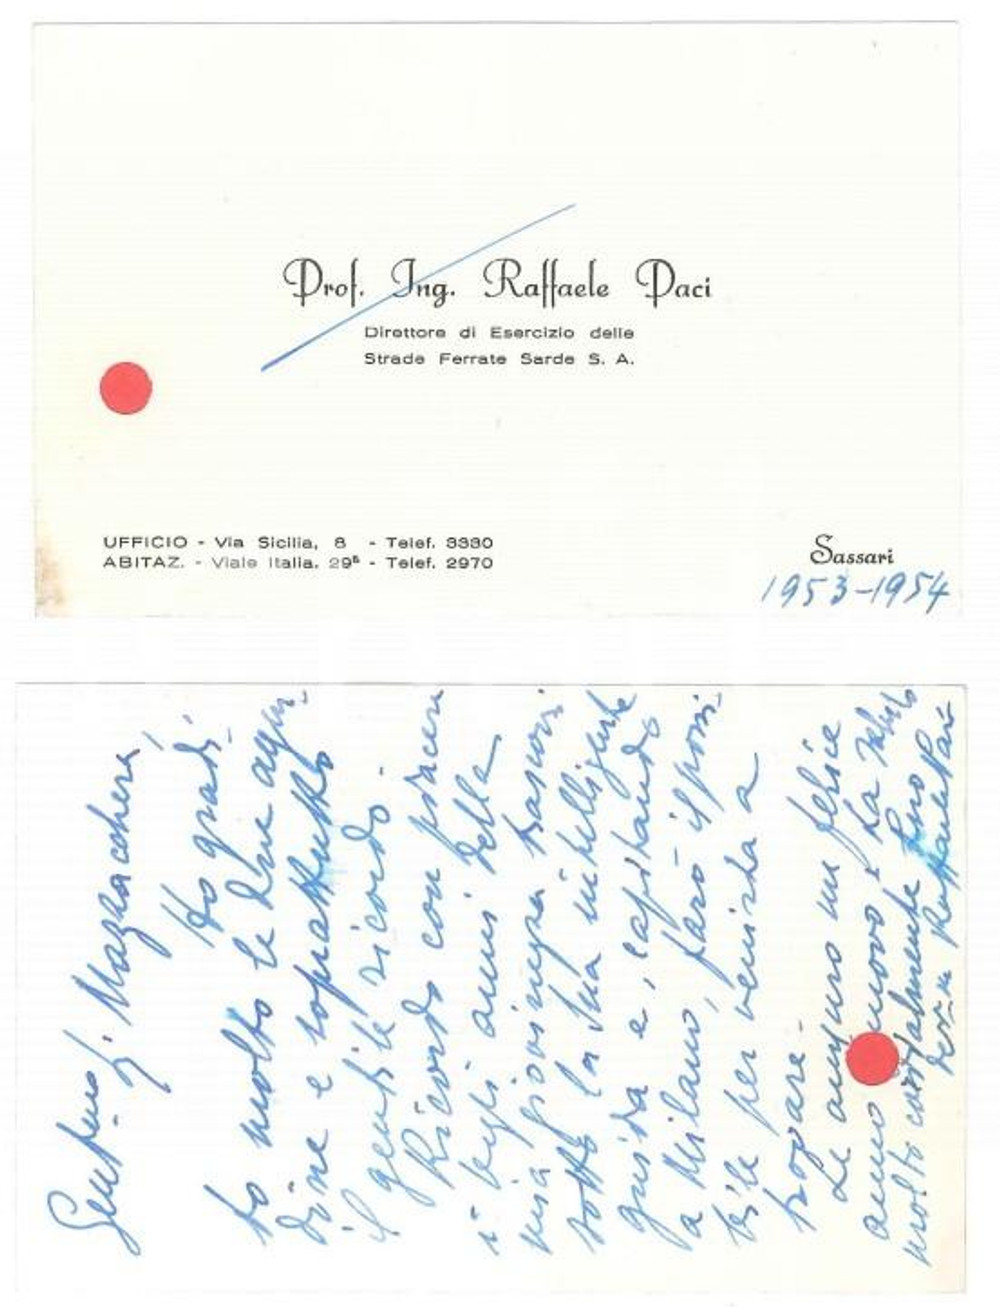 Prof. Ing. Raffaele Paci
Direttore di Esercizio delle
Strade Ferrate Sarde S. A.
UFFICIO - Via Sicilia, 8 - Telef. 3330
ABITAZ. - Viale Italia, 29ᴮ - Telef. 2970
Sassari
1953-1954
Gent.mo
Mazzacchera,
Ho gradi-
to molto le Due
dine e soprattutto
il gentile ricordo.
Ricordo con piacere
i begli anni della
mia giovinezza trascorsi
sotto la Sua intelligente
guida e, capitando
a Milano, farò il possi-
bile per venirla a
trovare.
Le auguro un felice
anno nuovo e La saluto
molto cordialmente Suo
Dev.mo Raffaele Paci